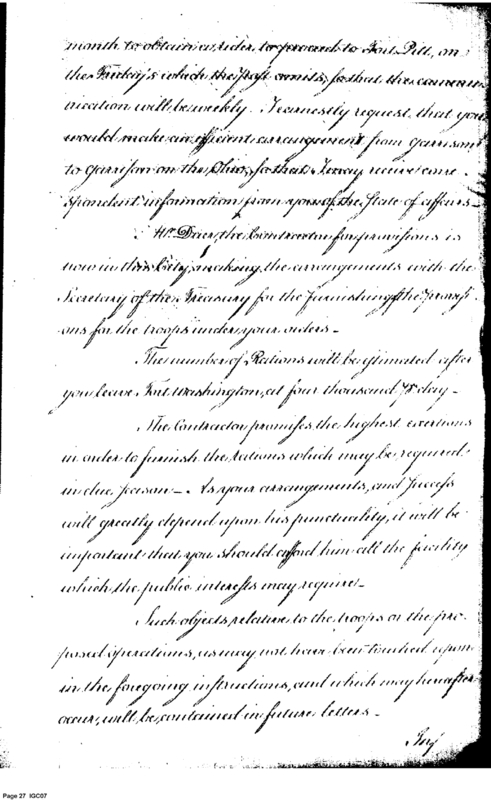 month to obtain a rider to proceed to Fort Pitt, on
the Friday's which the Post omits, so that the commu
nication will be weekly. I earnestly request that you
would make an efficient arrangement from garrison
to garrison on the Ohio, so that I may receive
spondent information from you of the State of affairs —
Mr. Duer, the Contractor for provisions is
now in this City, making the arrangements with the
Secretary of the Treasury for the furnishing of the provisi
ons for the troops under your orders —
The number of Rations will be estimated after
you leave Fort Washington, at four thousand pr day —
The Contractor promises the highest exertions
in order to furnish the Rations which may be required
in due season — As your arrangements, and success
will greatly depend upon his punctuality, it will be
important that you should afford him all the facility
which the public interests may require —
Such objects, relative to the troops or the pro.
posed operations, as may not have been touched upon
in the foregoing instructions, and which may hereafter
occur, will be contained in future letters —
Page 27 IGC07